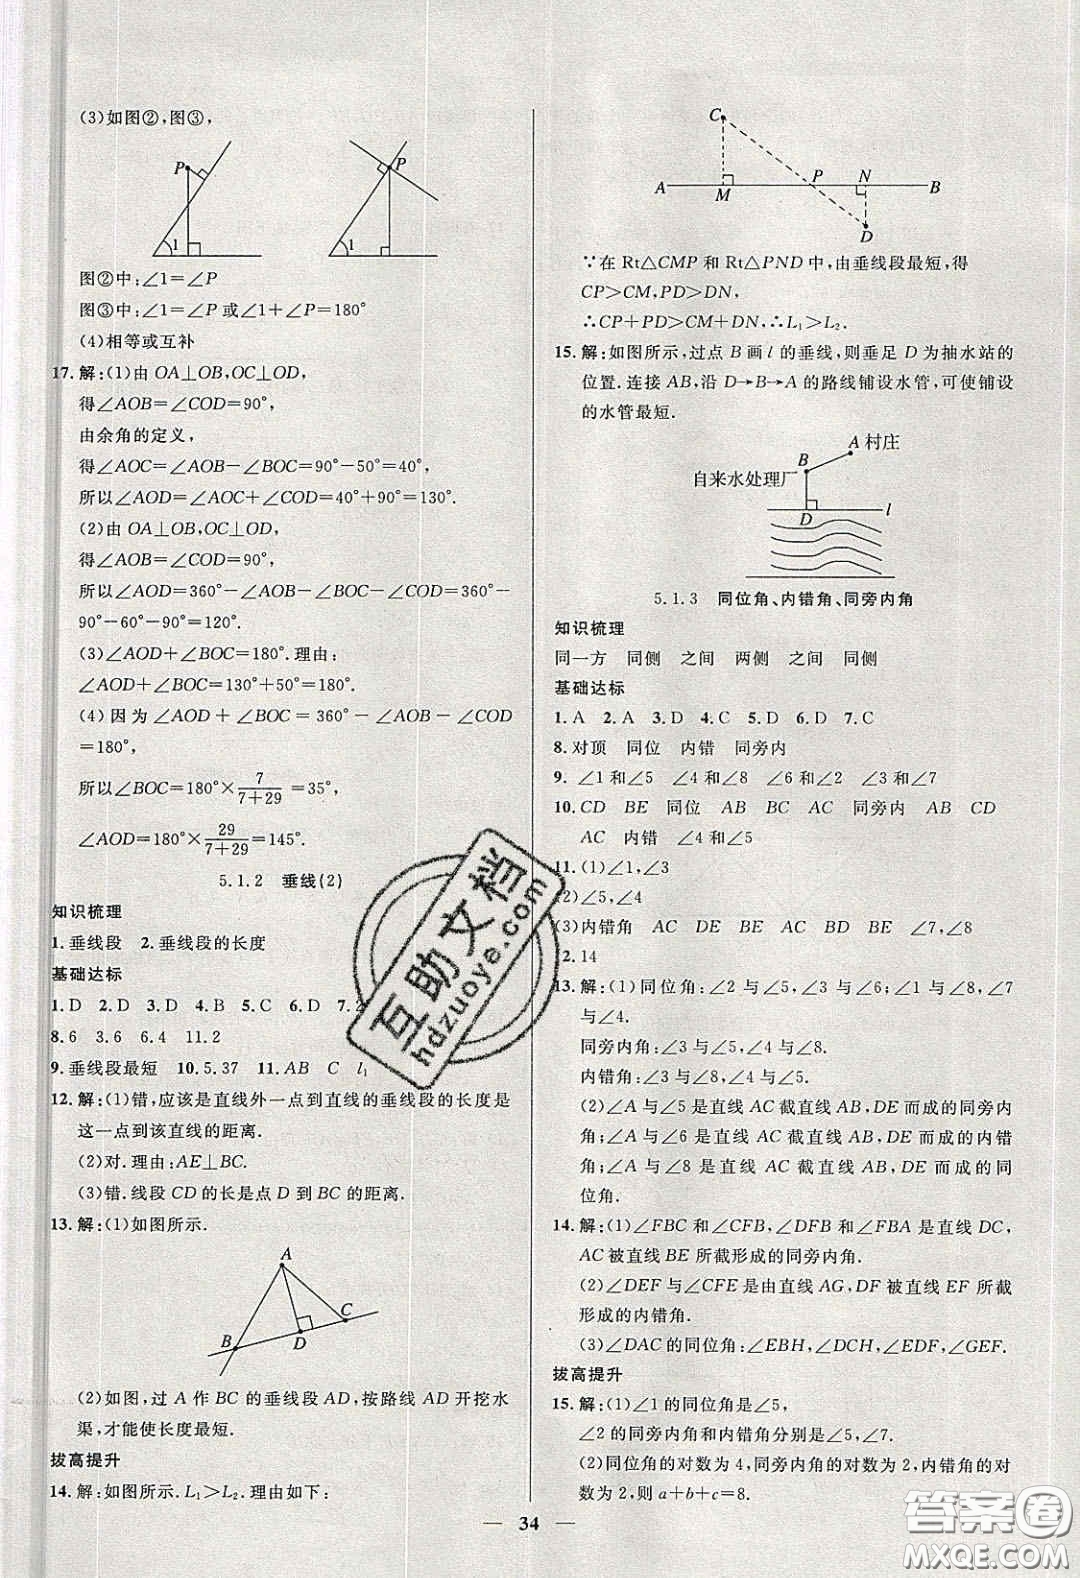 (3)如图②,图③,
P
1
P
1
图②中:∠1=∠P
图③中:∠1=∠P 或∠1+∠P=180°
(4)相等或互补
17.解:(1)由 OA⊥OB,OC⊥OD,
得∠AOB=∠COD=90°,
由余角的定义,
得∠AOC=∠AOB-∠BOC=90°-50°=40°,
所以∠AOD=∠AOC+∠COD=40°+90°=130°.
(2)由 OA⊥OB,OC⊥OD,
得∠AOB=∠COD=90°,
所以∠AOD=360°-∠AOB-∠BOC-∠COD=360°-
90°-60°-90°=120°.
(3)∠AOD+∠BOC=180°.理由:
∠AOD+∠BOC=130°+50°=180°.
(4)因为∠AOD+∠BOC=360°-∠AOB-∠COD
=180°,
所以∠BOC=180°×7/(7+29)=35°,
∠AOD=180°×29/(7+29)=145°.
5.1.2 垂线(2)
知识梳理
1.垂线段 2.垂线段的长度
基础达标
1.D 2.D 3.D 4.B 5.C 6.D 7.
8.6 3.6 6.4 11.2
9.垂线段最短 10.5.37 11.AB C l₁
12.解:(1)错,应该是直线外一点到直线的垂线段的长度是
这一点到该直线的距离.
(2)对.理由:AE⊥BC.
(3)错.线段 CD 的长是点 D 到 BC 的距离.
13.解:(1)如图所示.
A
C
B
D
(2)如图,过 A 作 BC 的垂线段 AD,按路线 AD 开挖水
渠,才能使长度最短.
拔高提升
14.解:如图所示.L₁>L₂.理由如下:
C
A M P N B
D
∵在 Rt△CMP 和 Rt△PND 中,由垂线段最短,得
CP>CM,PD>DN,
∴CP+PD>CM+DN,∴L₁>L₂.
15.解:如图所示,过点 B 画 l 的垂线,则垂足 D 为抽水站的
位置.连接 AB,沿 D→B→A 的路线铺设水管,可使铺设
的水管最短.
A 村庄
B
自来水处理厂
D l
5.1.3 同位角、内错角、同旁内角
知识梳理
同一方 同侧 之间 两侧 之间 同侧
基础达标
1.A 2.A 3.D 4.C 5.D 6.D 7.C
8.对顶 同位 内错 同旁内
9.∠1和∠5 ∠4和∠8 ∠6和∠2 ∠3和∠7
10.CD BE 同位 AB BC AC 同旁内 AB CD
AC 内错 ∠4和∠5
11.(1)∠1,∠3
(2)∠5,∠4
(3)内错角 AC DE BE AC BD BE ∠7,∠8
12.14
13.解:(1)同位角:∠2 与∠5,∠3 与∠6;∠1 与∠8,∠7
与∠4.
同旁内角:∠3与∠5,∠4与∠8.
内错角:∠3与∠8,∠4与∠5.
(2)∠A 与∠5 是直线 AC 截直线 AB,DE 而成的同旁内
角;∠A 与∠6 是直线 AC 截直线 AB,DE 而成的内错
角;∠A 与∠8 是直线 AC 截直线 AB,DE 而成的同
位角.
14.解:(1)∠FBC 和∠CFB,∠DFB 和∠FBA 是直线 DC,
AC 被直线 BE 所截形成的同旁内角.
(2)∠DEF 与∠CFE 是由直线 AG,DF 被直线 EF 所截
形成的内错角.
(3)∠DAC的同位角:∠EBH,∠DCH,∠EDF,∠GEF.
拔高提升
15.解:(1)∠1的同位角是∠5,
∠2的同旁内角和内错角分别是∠5,∠7.
(2)同位角的对数为 4,同旁内角的对数为 2,内错角的对
数为2,则 a+b+c=8.
34
互助文档
hdzuoye.com
答案圈
MXQE.COM